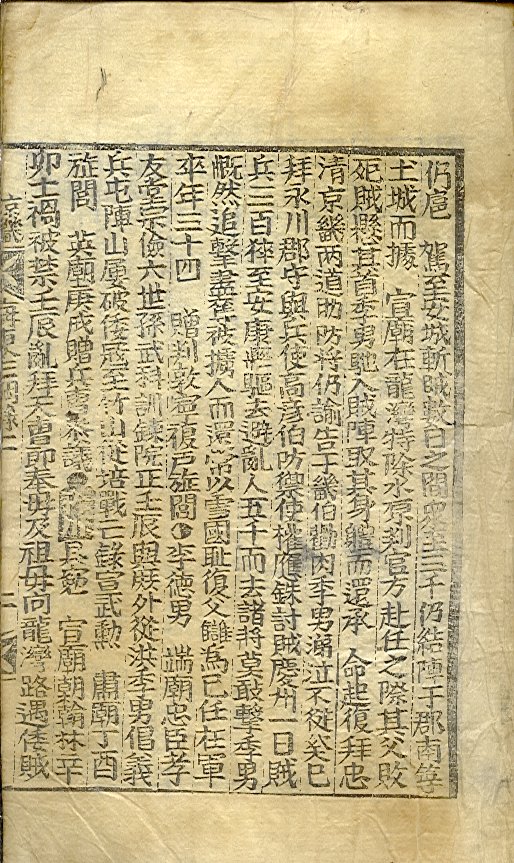 仍扈 駕至安城斬賊數日之間衆至三千仍結陣于郡南筑
土城而據 宣廟在龍灣特除水原判官方赴任之際其父敗
死賊縣其首季男馳入賊陣取其身體而還承 命起復拜忠
清京畿两道助防將仍諭告于畿伯勸肉季男涕泣不從癸巳
拜永川郡守與兵使高彦伯防禦使權應銖討賊慶州一日賊
兵三百猝至安康縣驅去避亂人五千而去諸將莫敢擊季男
慨然追擊盡奪被擄人而還常以雪國耻復父讎爲己任在軍
卒年三十四 贈判敦寧復戶旌閭●李德男 端廟忠臣孝
友堂宗儉六世孫武科訓鍊院正壬辰與庶外從洪季男倡義
兵屯陣山屢破倭冦至竹山從 戰亡錄宣武勲 肅廟丁酉
旌閭 英廟庚戌贈兵曹叅議● 具 宣廟朝翰林辛
卯士禍被禁壬辰亂拜 曹郎奉母及祖母向龍灣路遇倭賊
京畿